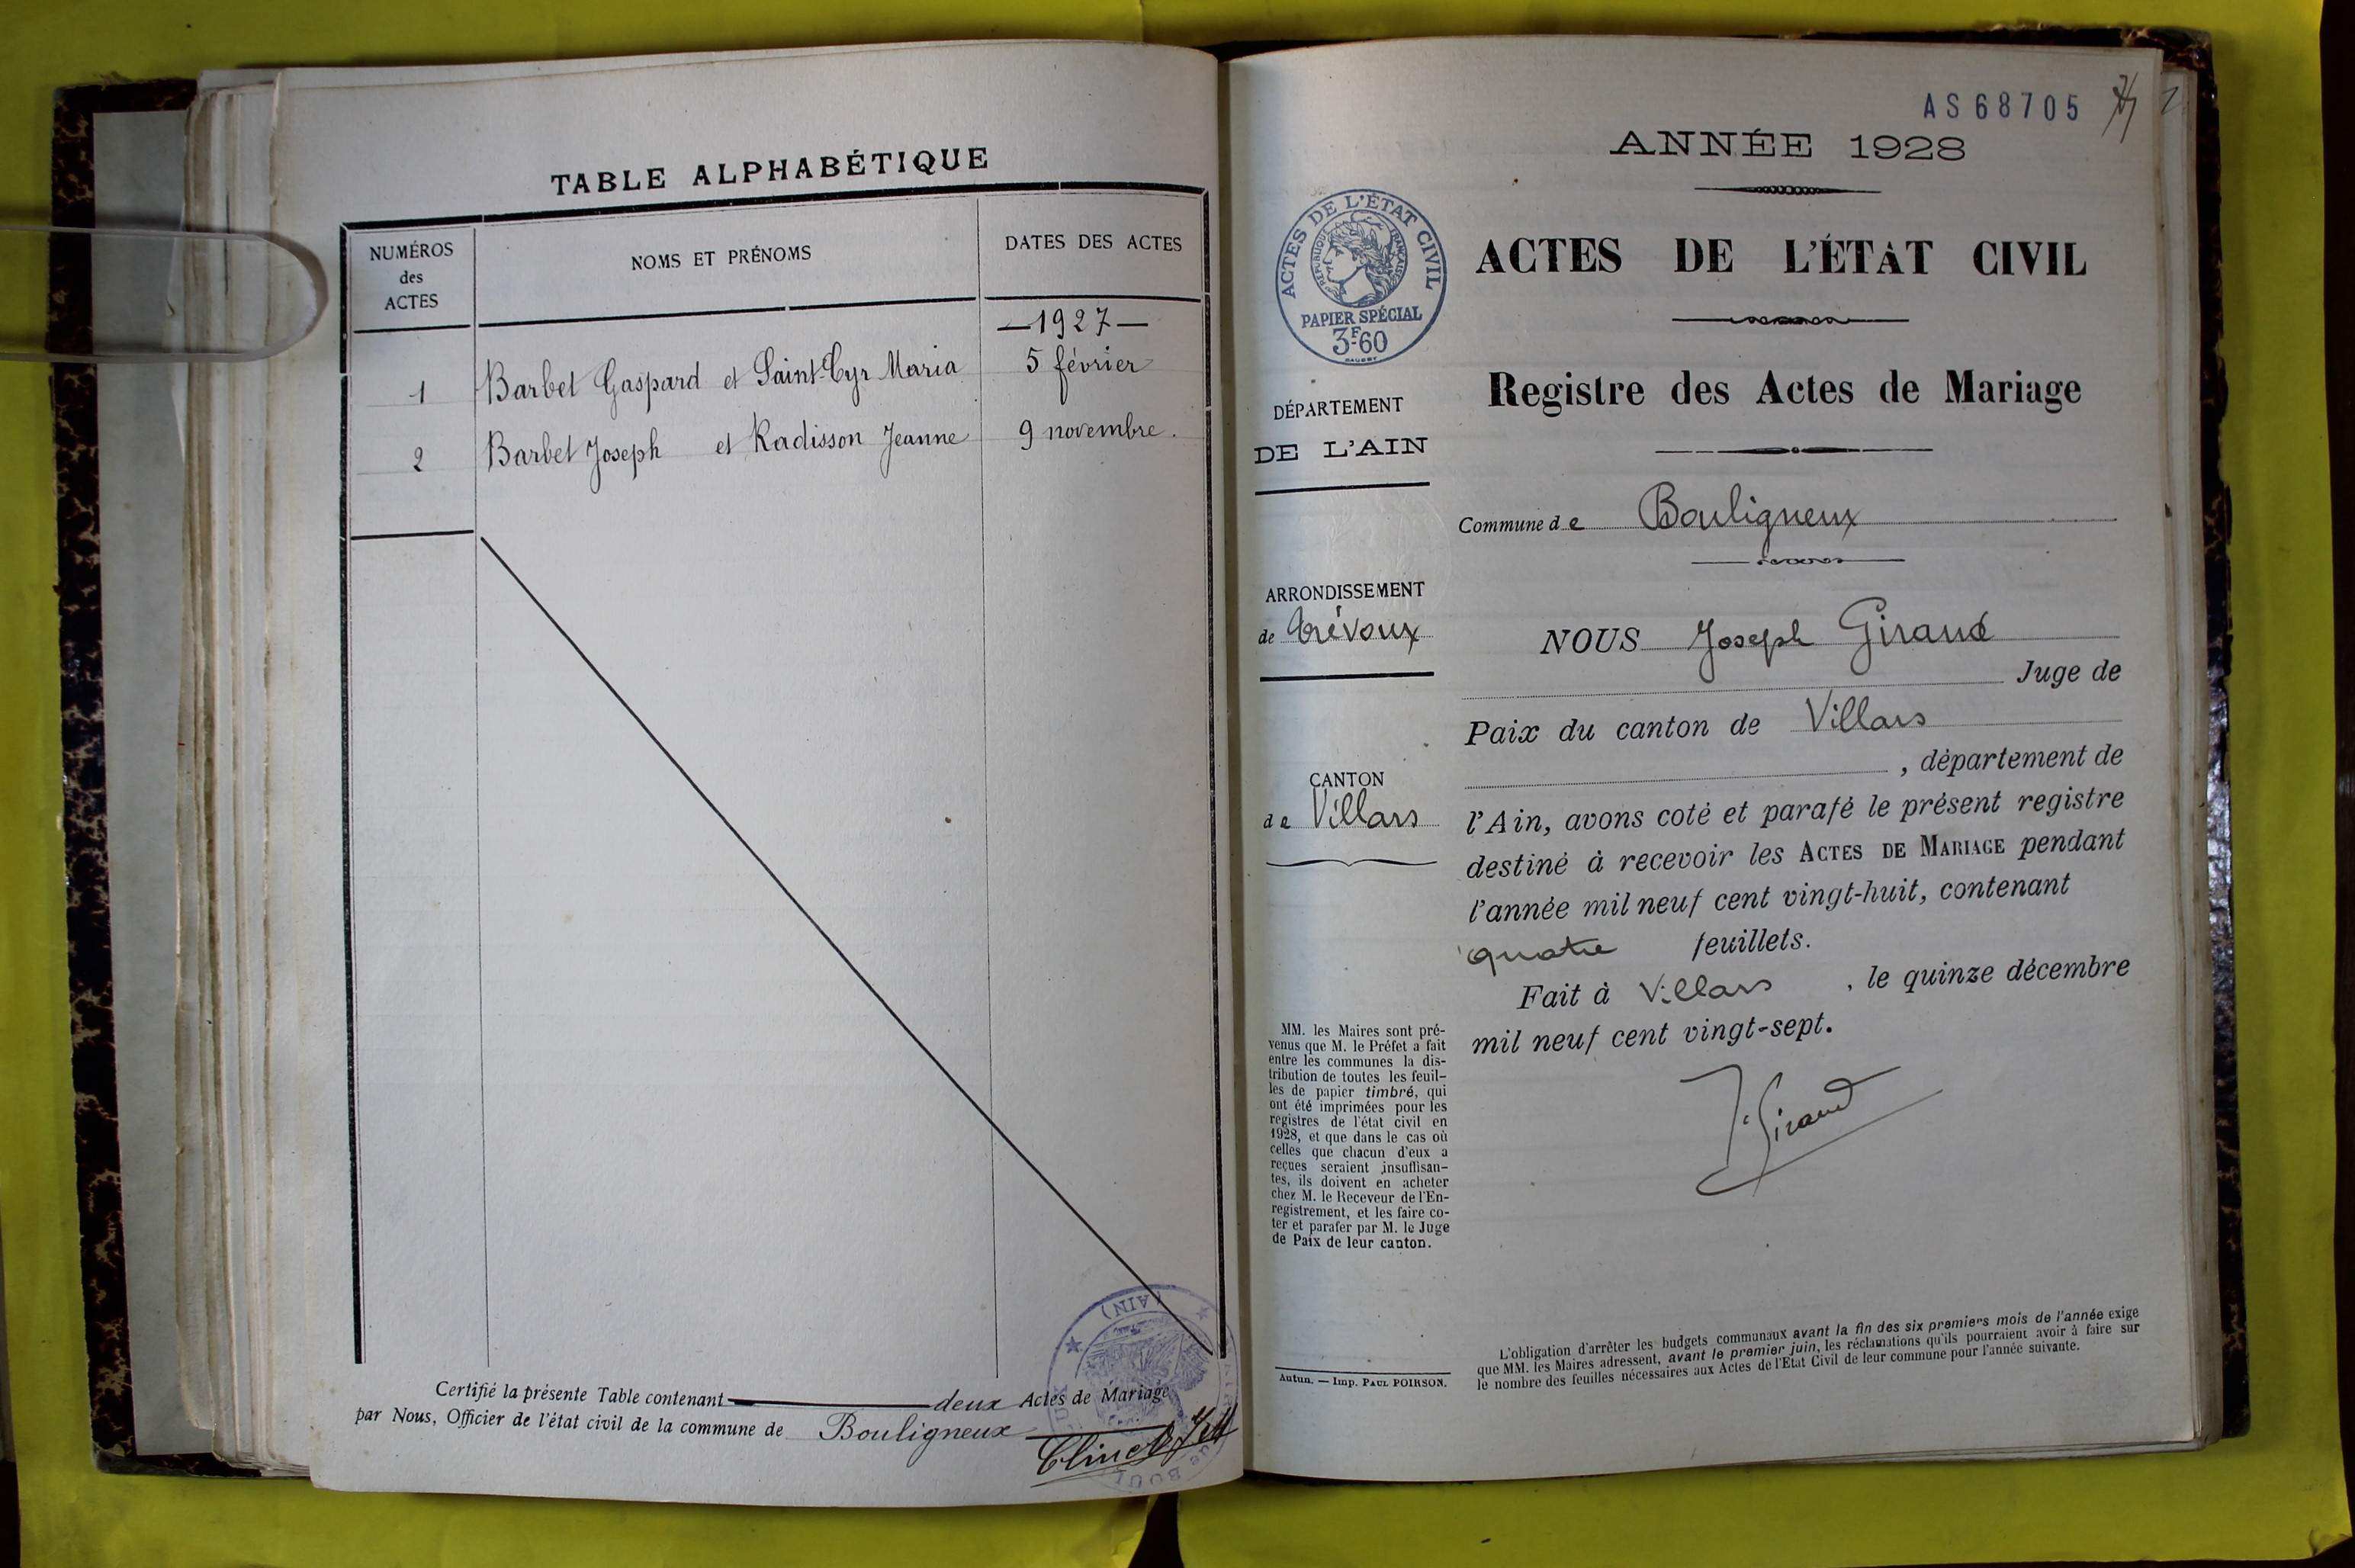 TABLE ALPHABÉTIQUE
NUMÉROS
des
ACTES
NOMS ET PRÉNOMS
DATES DES ACTES
—1927—
1 Barbet Gaspard et Saint-Cyr Maria 5 février
2 Barbet Joseph et Radisson Jeanne 9 novembre.
Certifié la présente Table contenant deux Actes de Mariage
par Nous, Officier de l'état civil de la commune de Bouligneux
(AIN)
AS68705
ANNÉE 1928
ACTES DE L'ÉTAT CIVIL
RÉPUBLIQUE FRANÇAISE
PAPIER SPÉCIAL
3F.60
ACTES DE L'ÉTAT CIVIL
Registre des Actes de Mariage
DÉPARTEMENT
DE L'AIN
Commune de Bouligneux
ARRONDISSEMENT
de Trévoux
CANTON
de Villars
NOUS Joseph Giraud
Juge de
Paix du canton de Villars
, département de
l'Ain, avons coté et parafé le présent registre
destiné à recevoir les ACTES DE MARIAGE pendant
l'année mil neuf cent vingt-huit, contenant
quatre feuillets.
Fait à Villars , le quinze décembre
mil neuf cent vingt-sept.
J. Giraud
MM. les Maires sont pré-
venus que M. le Préfet a fait
entre les communes la dis-
tribution de toutes les feuil-
les de papier timbré, qui
ont été imprimées pour les
registres de l'état civil en
1928, et que dans le cas où
celles que chacun d'eux a
reçues seraient insuffisan-
tes, ils doivent en acheter
chez M. le Receveur de l'En-
registrement, et les faire co-
ter et parafer par M. le Juge
de Paix de leur canton.
Autun. — Imp. PAUL POIRSON.
L'obligation d'arrêter les budgets communaux avant la fin des six premiers mois de l'année exige
que MM. les Maires adressent, avant le premier juin, les réclamations qu'ils pourraient avoir à faire sur
le nombre des feuilles nécessaires aux Actes de l'Etat Civil de leur commune pour l'année suivante.